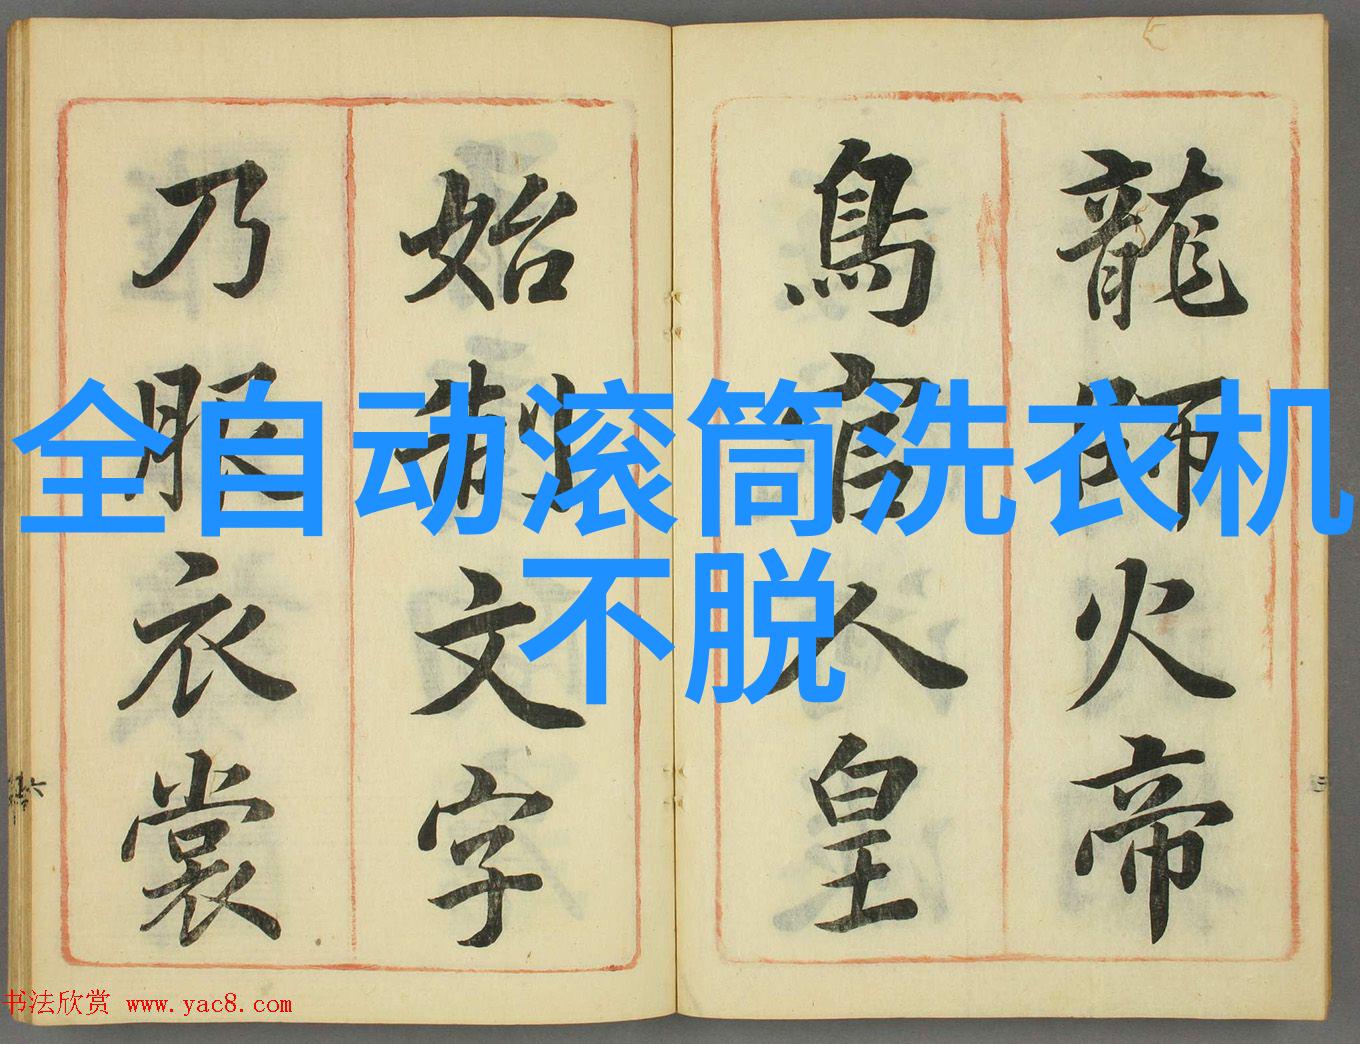 龍師火帝
鳥官人皇
始制文字
乃服衣裳
全自动滚筒洗衣机
不脱
书法欣赏 www.yac8.com